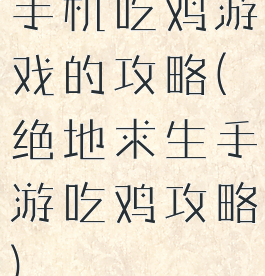 手机吃鸡游
戏的攻略(
绝地求生手
游吃鸡攻略
)